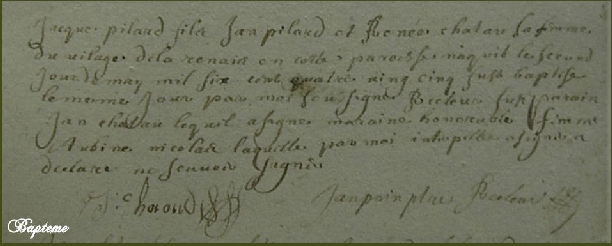 Jacque pilard fils Jan pilard et Renée chatau sa femme
du vilage de la en cette paroisse naquit le second
Jour de may mil six cent quatre ving cinq fust baptise
le meme Jour par moi sousigné Recteur fust parain
Jan chatau lequil a signe maraine honorable femme
Aubine nicolas laquelle par moi intepelle a signer a
declare ne scavoir signer
Jan Recteur
Bapteme